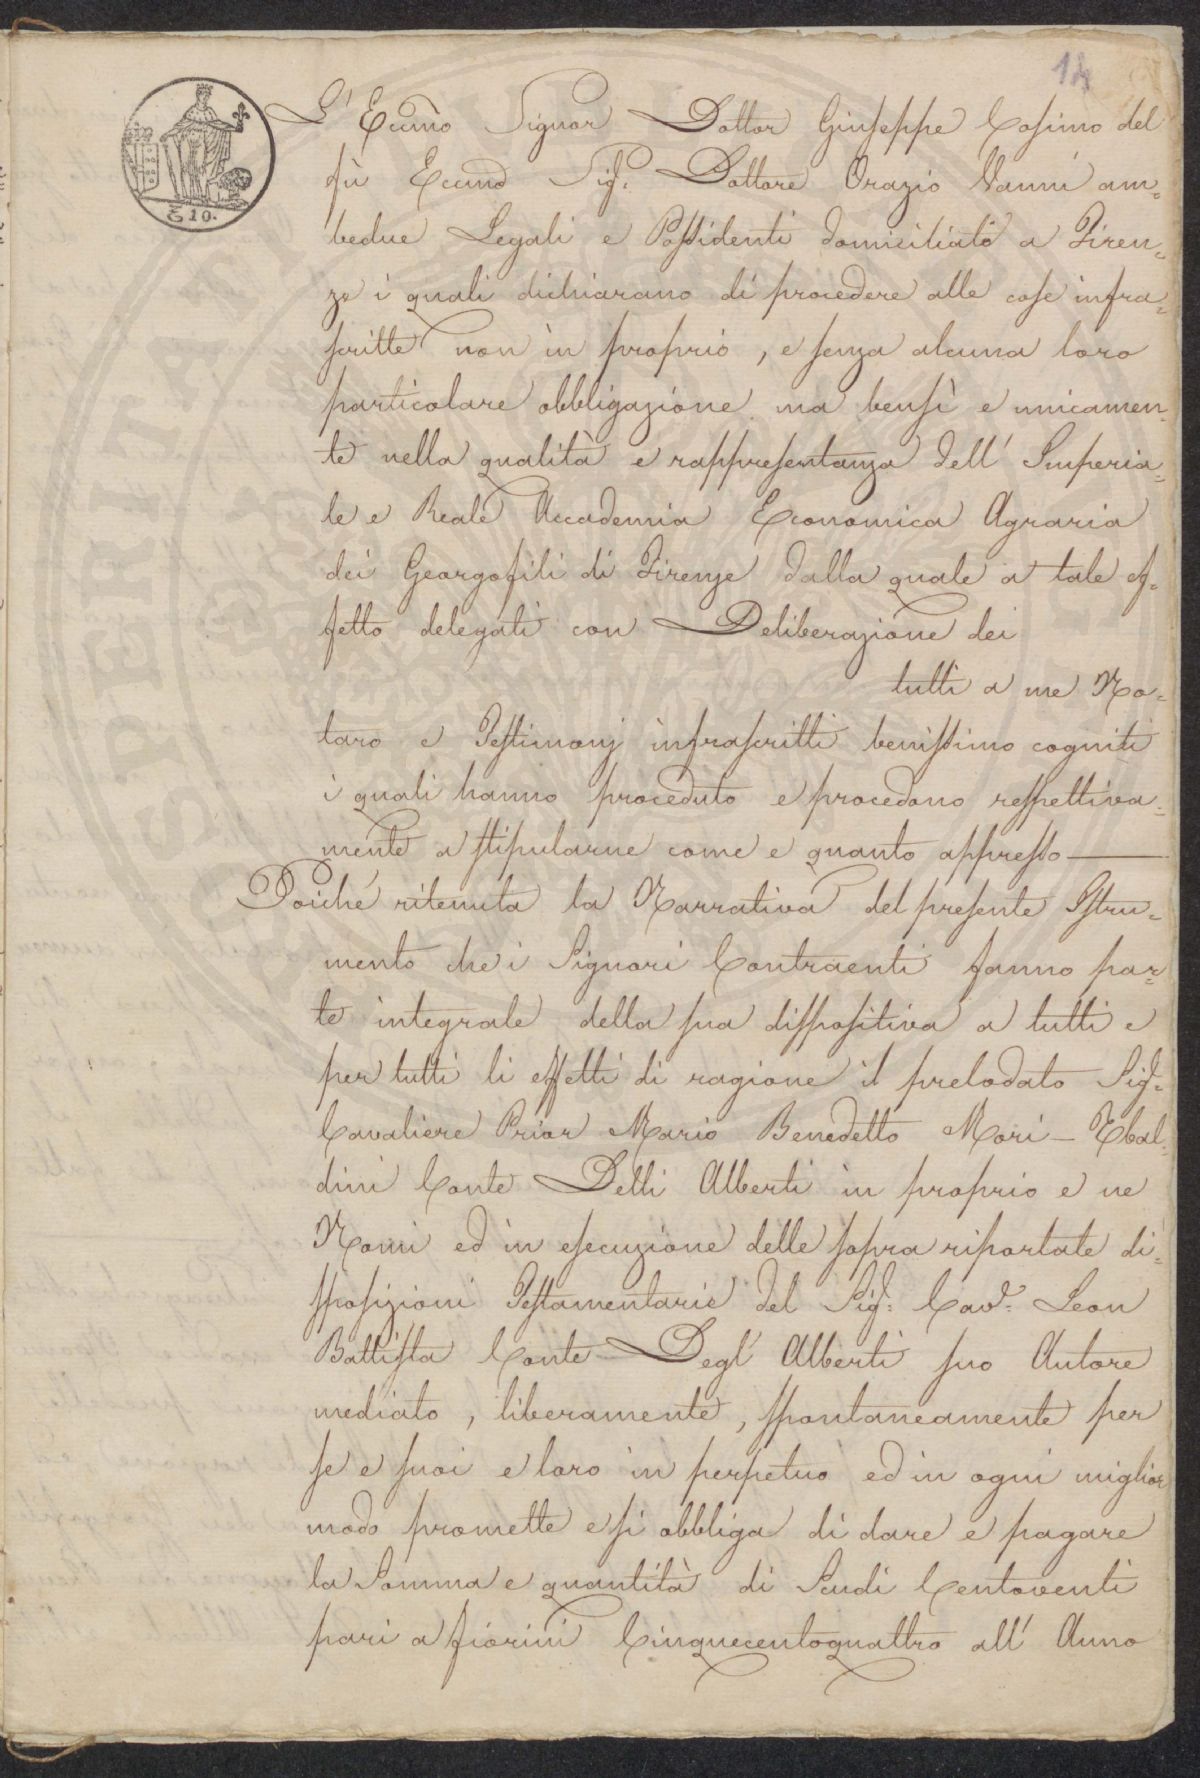 14
L' Eccmo Signor Dottor Giuseppe Cosimo del
fù Eccmo Sig.r Dottore Orazio Vanni am=
bedue Legali e Possidenti domiciliati a Firen=
ze i quali dichiarano di procedere alle cose infra=
scritte non in proprio, e senza alcuna loro
particolare obbligazione ma bensì e unicamen=
te nella qualità e rappresentanza dell' Imperia=
le e Reale Accademia Economica Agraria
dei Georgofili di Firenze dalla quale a tale ef=
fetto delegati con Deliberazione dei
tutti a me No=
taro e Testimonj infrascritti benissimo cogniti
i quali hanno proceduto e procedono respettiva=
mente a stipularne come e quanto appresso —
Poiché ritenuta la Narrativa del presente Istru=
mento che i Signori Contraenti fanno par=
te integrale della sua dispositiva a tutti e
per tutti li effetti di ragione il prelodato Sig.=
Cavaliere Prior Mario Benedetto Mori - Ebal=
dini Conte Delli Alberti in proprio e ne
Nomi ed in esecuzione delle sopra riportate di=
sposizioni Testamentarie del Sig.r Cav.r Leon
Battista Conte Degl' Alberti suo Autore
mediato, liberamente, spontaneamente per
se e suoi e loro in perpetuo ed in ogni miglior
modo promette e si obbliga di dare e pagare
la Somma e quantità di Scudi Centoventi
pari a fiorini Cinquecentoquattro all' Anno
10.